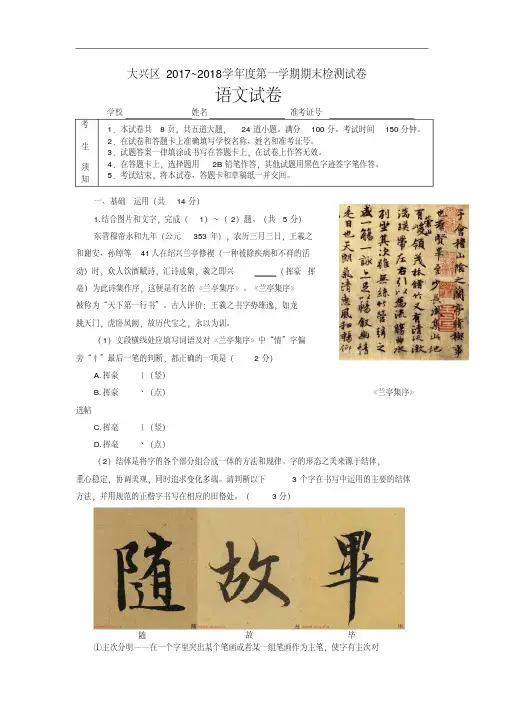 大兴区 2017~2018学年度第一学期期末检测试卷
语文试卷
学校 姓名 准考证号
考生须知
1．本试卷共 8 页，共五道大题， 24 道小题。满分 100 分。考试时间 150 分钟。
2．在试卷和答题卡上准确填写学校名称、姓名和准考证号。
3．试题答案一律填涂或书写在答题卡上，在试卷上作答无效。
4．在答题卡上，选择题用 2B 铅笔作答，其他试题用黑色字迹签字笔作答。
5．考试结束，将本试卷、答题卡和草稿纸一并交回。
一、基础 运用（共 14 分）
1.结合图片和文字，完成（ 1）～（ 2）题。（共 5 分）
东晋穆帝永和九年（公元 353 年），农历三月三日，王羲之
和谢安、孙绰等 41 人在绍兴兰亭修禊（一种祓除疾病和不祥的活
动）时，众人饮酒赋诗，汇诗成集，羲之即兴 （挥豪 挥
毫）为此诗集作序，这便是有名的《兰亭集序》。《兰亭集序》
被称为“天下第一行书”。古人评价：王羲之书字势雄逸，如龙
跳天门，虎卧凤阙，故历代宝之，永以为训。
（1）文段横线处应填写词语及对《兰亭集序》中“情”字偏
旁“忄”最后一笔的判断，都正确的一项是（ 2 分）
A. 挥豪 丨（竖）
B. 挥豪 丶（点） 《兰亭集序》
选帖
C. 挥毫 丨（竖）
D. 挥毫 丶（点）
（2）结体是将字的各个部分组合成一体的方法和规律。字的形态之美来源于结体，
重心稳定，协调美观，同时追求变化多端。请判断以下 3 个字在书写中运用的主要的结体
方法，并用规范的正楷字书写在相应的田格处。（ 3 分）
随 故 畢
随 故 毕
①主次分明——在一个字里突出某个笔画或者某一组笔画作为主笔，使字有主次对